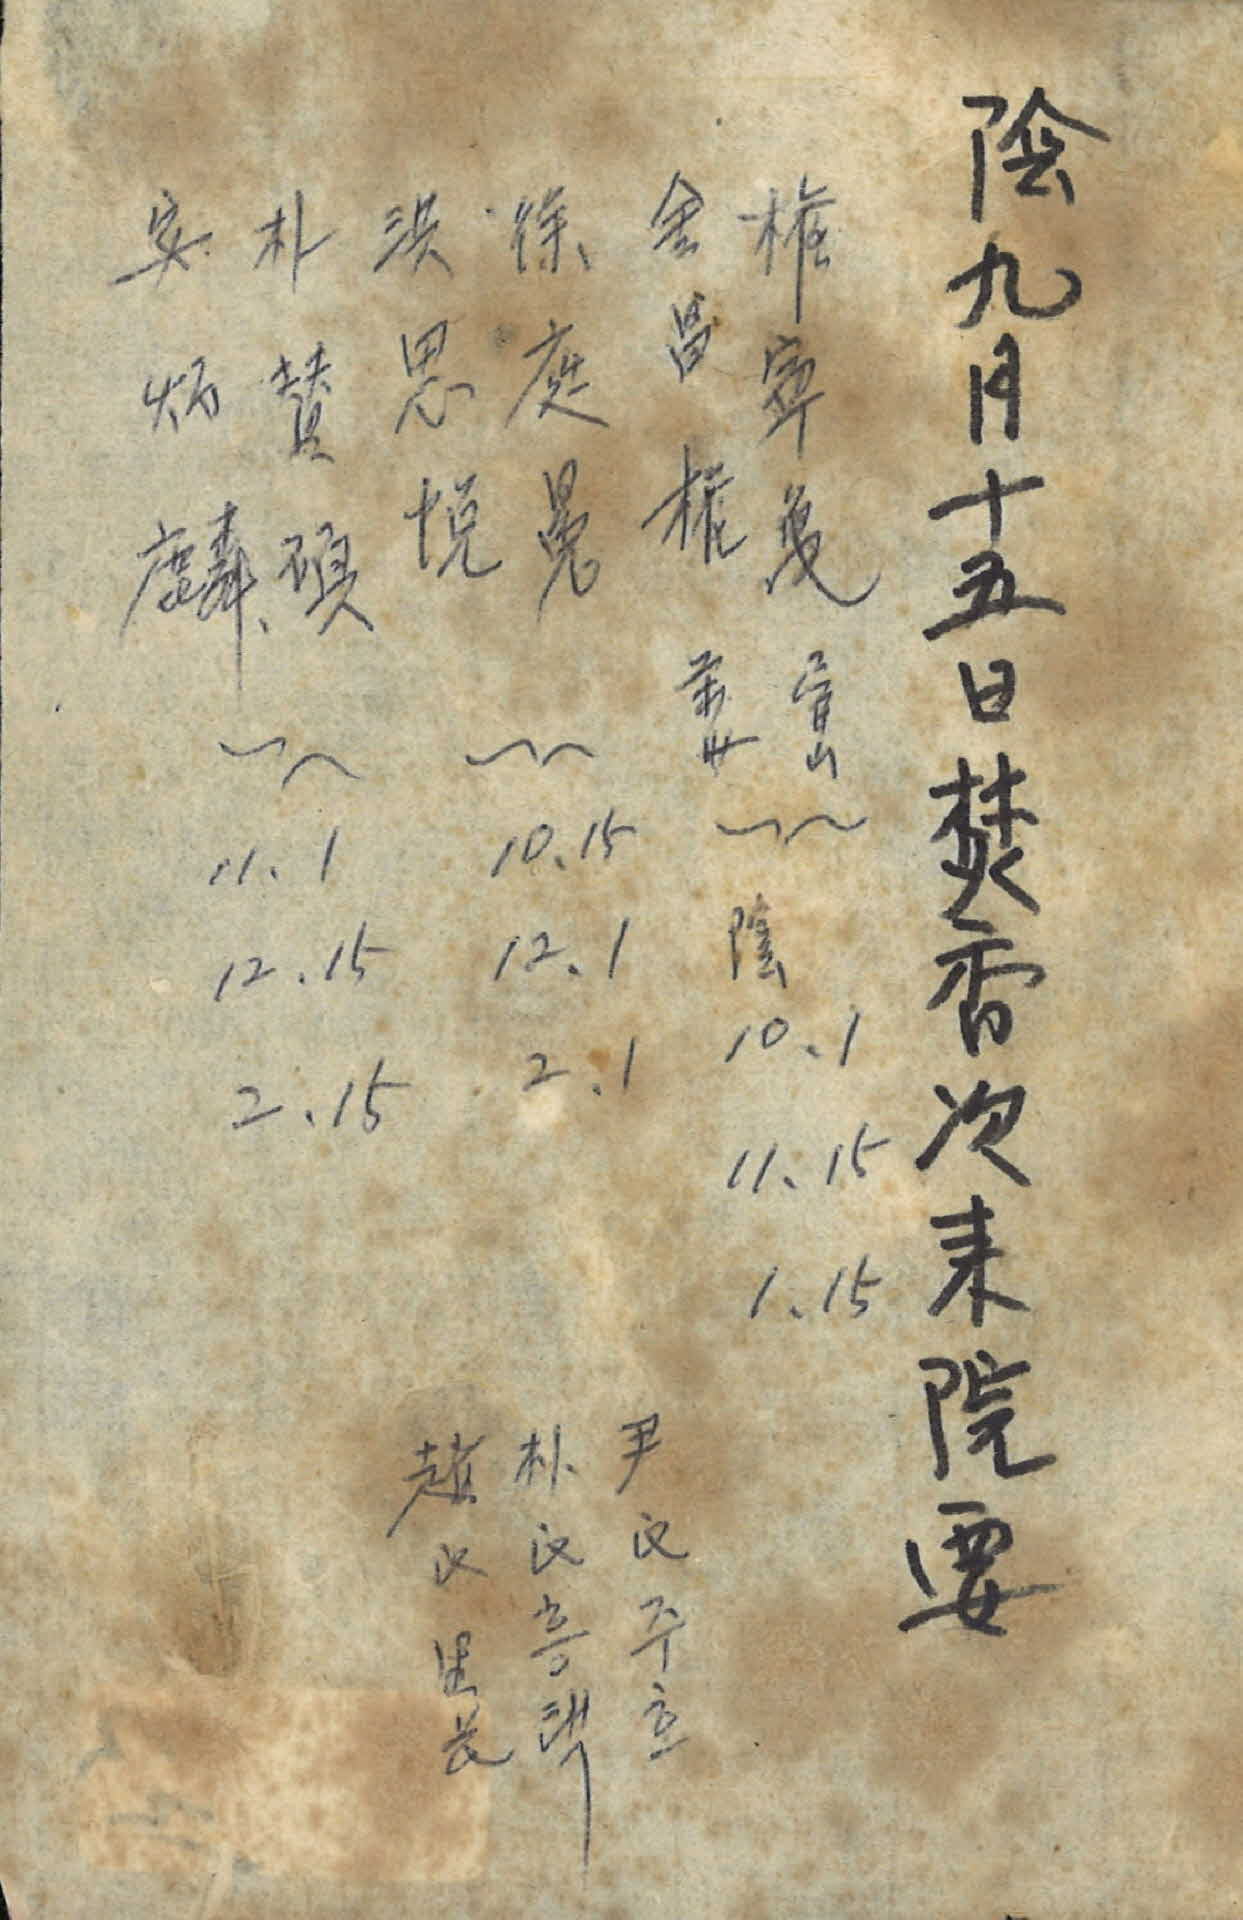 陰九月十五日焚香次来院要
權寧
金昌權
陰
10.1
11.15
1.15
徐庭晃
洪思悅
10.15
12.1
2.1
朴贊碩
安炳麟
11.1
12.15
2.15
尹氏주효
朴氏흥택
趙氏里長